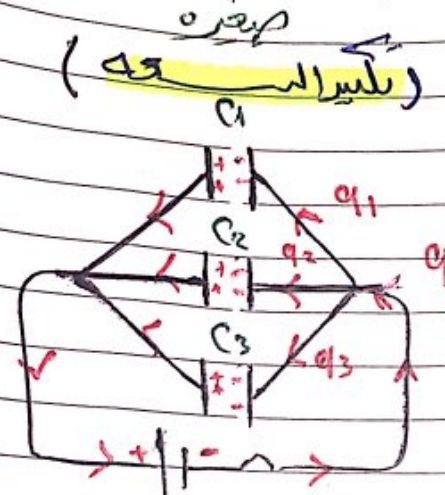 صغيرة
(تكبير السعة)
C1
q1
C2
q2
q
C3
q3
+ -